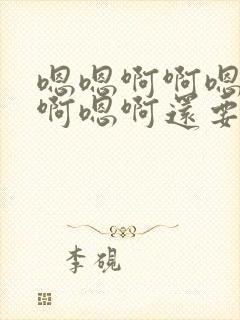 嗯嗯啊啊嗯
啊嗯啊還要
李硯